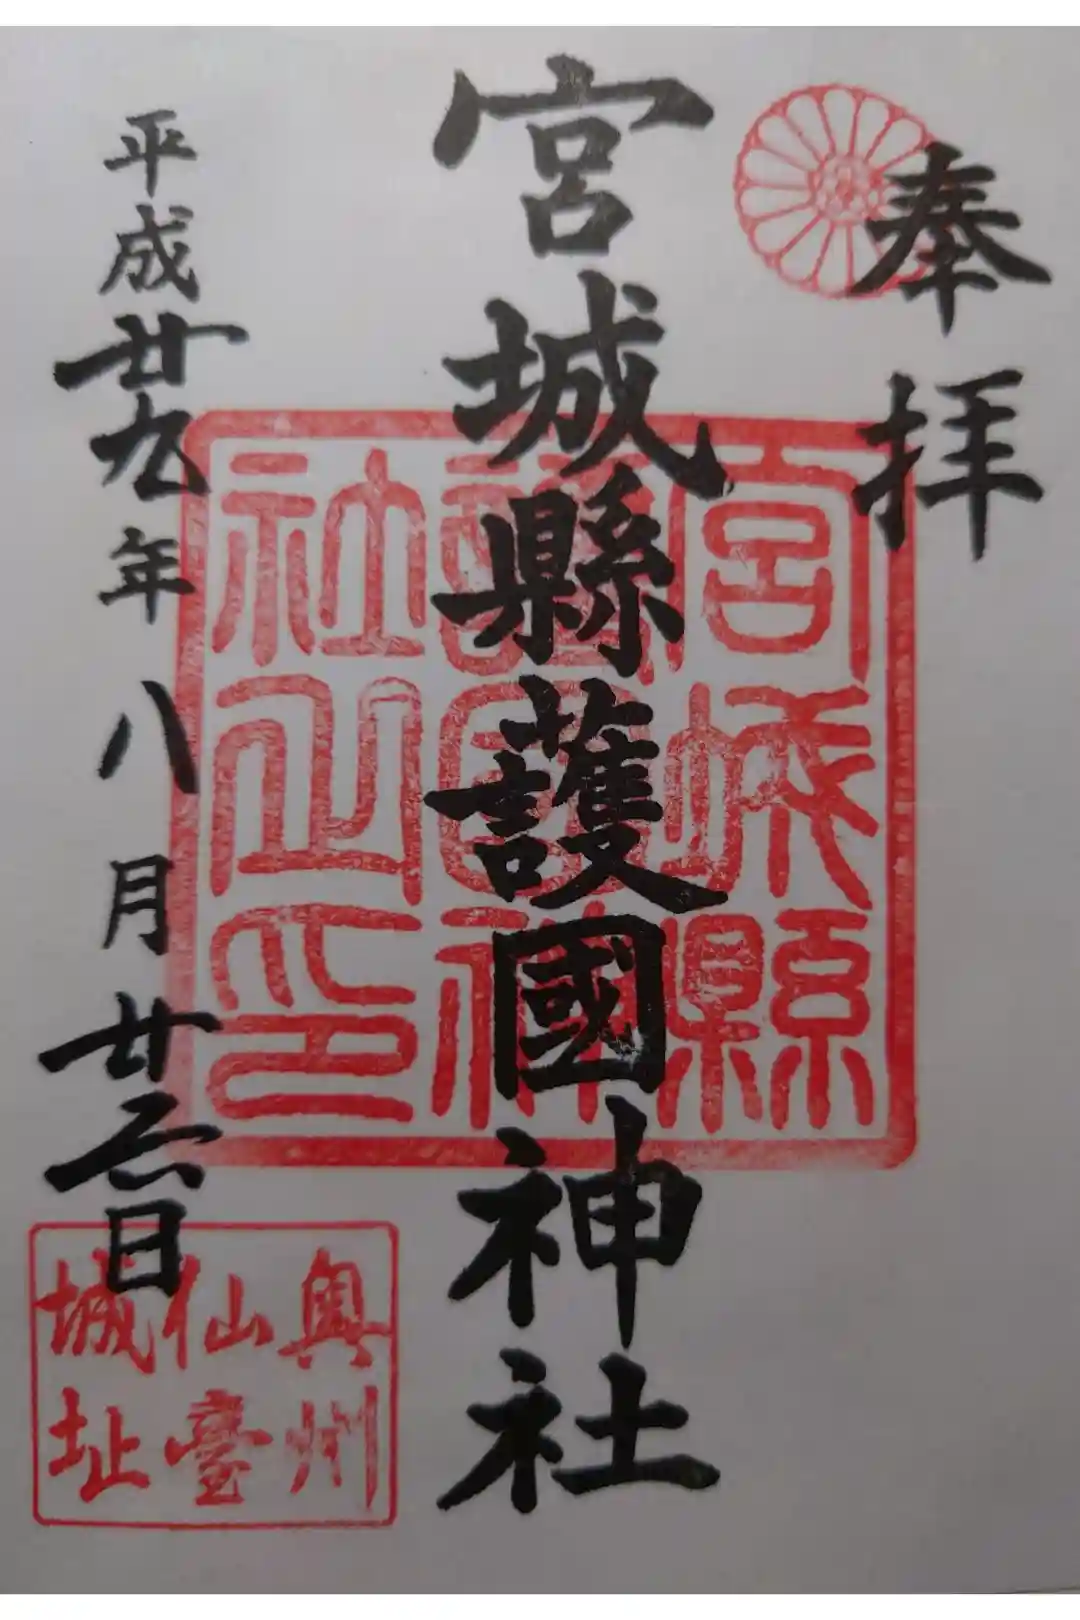 奉拝
宮城縣護國神社
平成廿九年八月廿六日
宮城縣
護國神
社之印
奥州
仙臺
城址